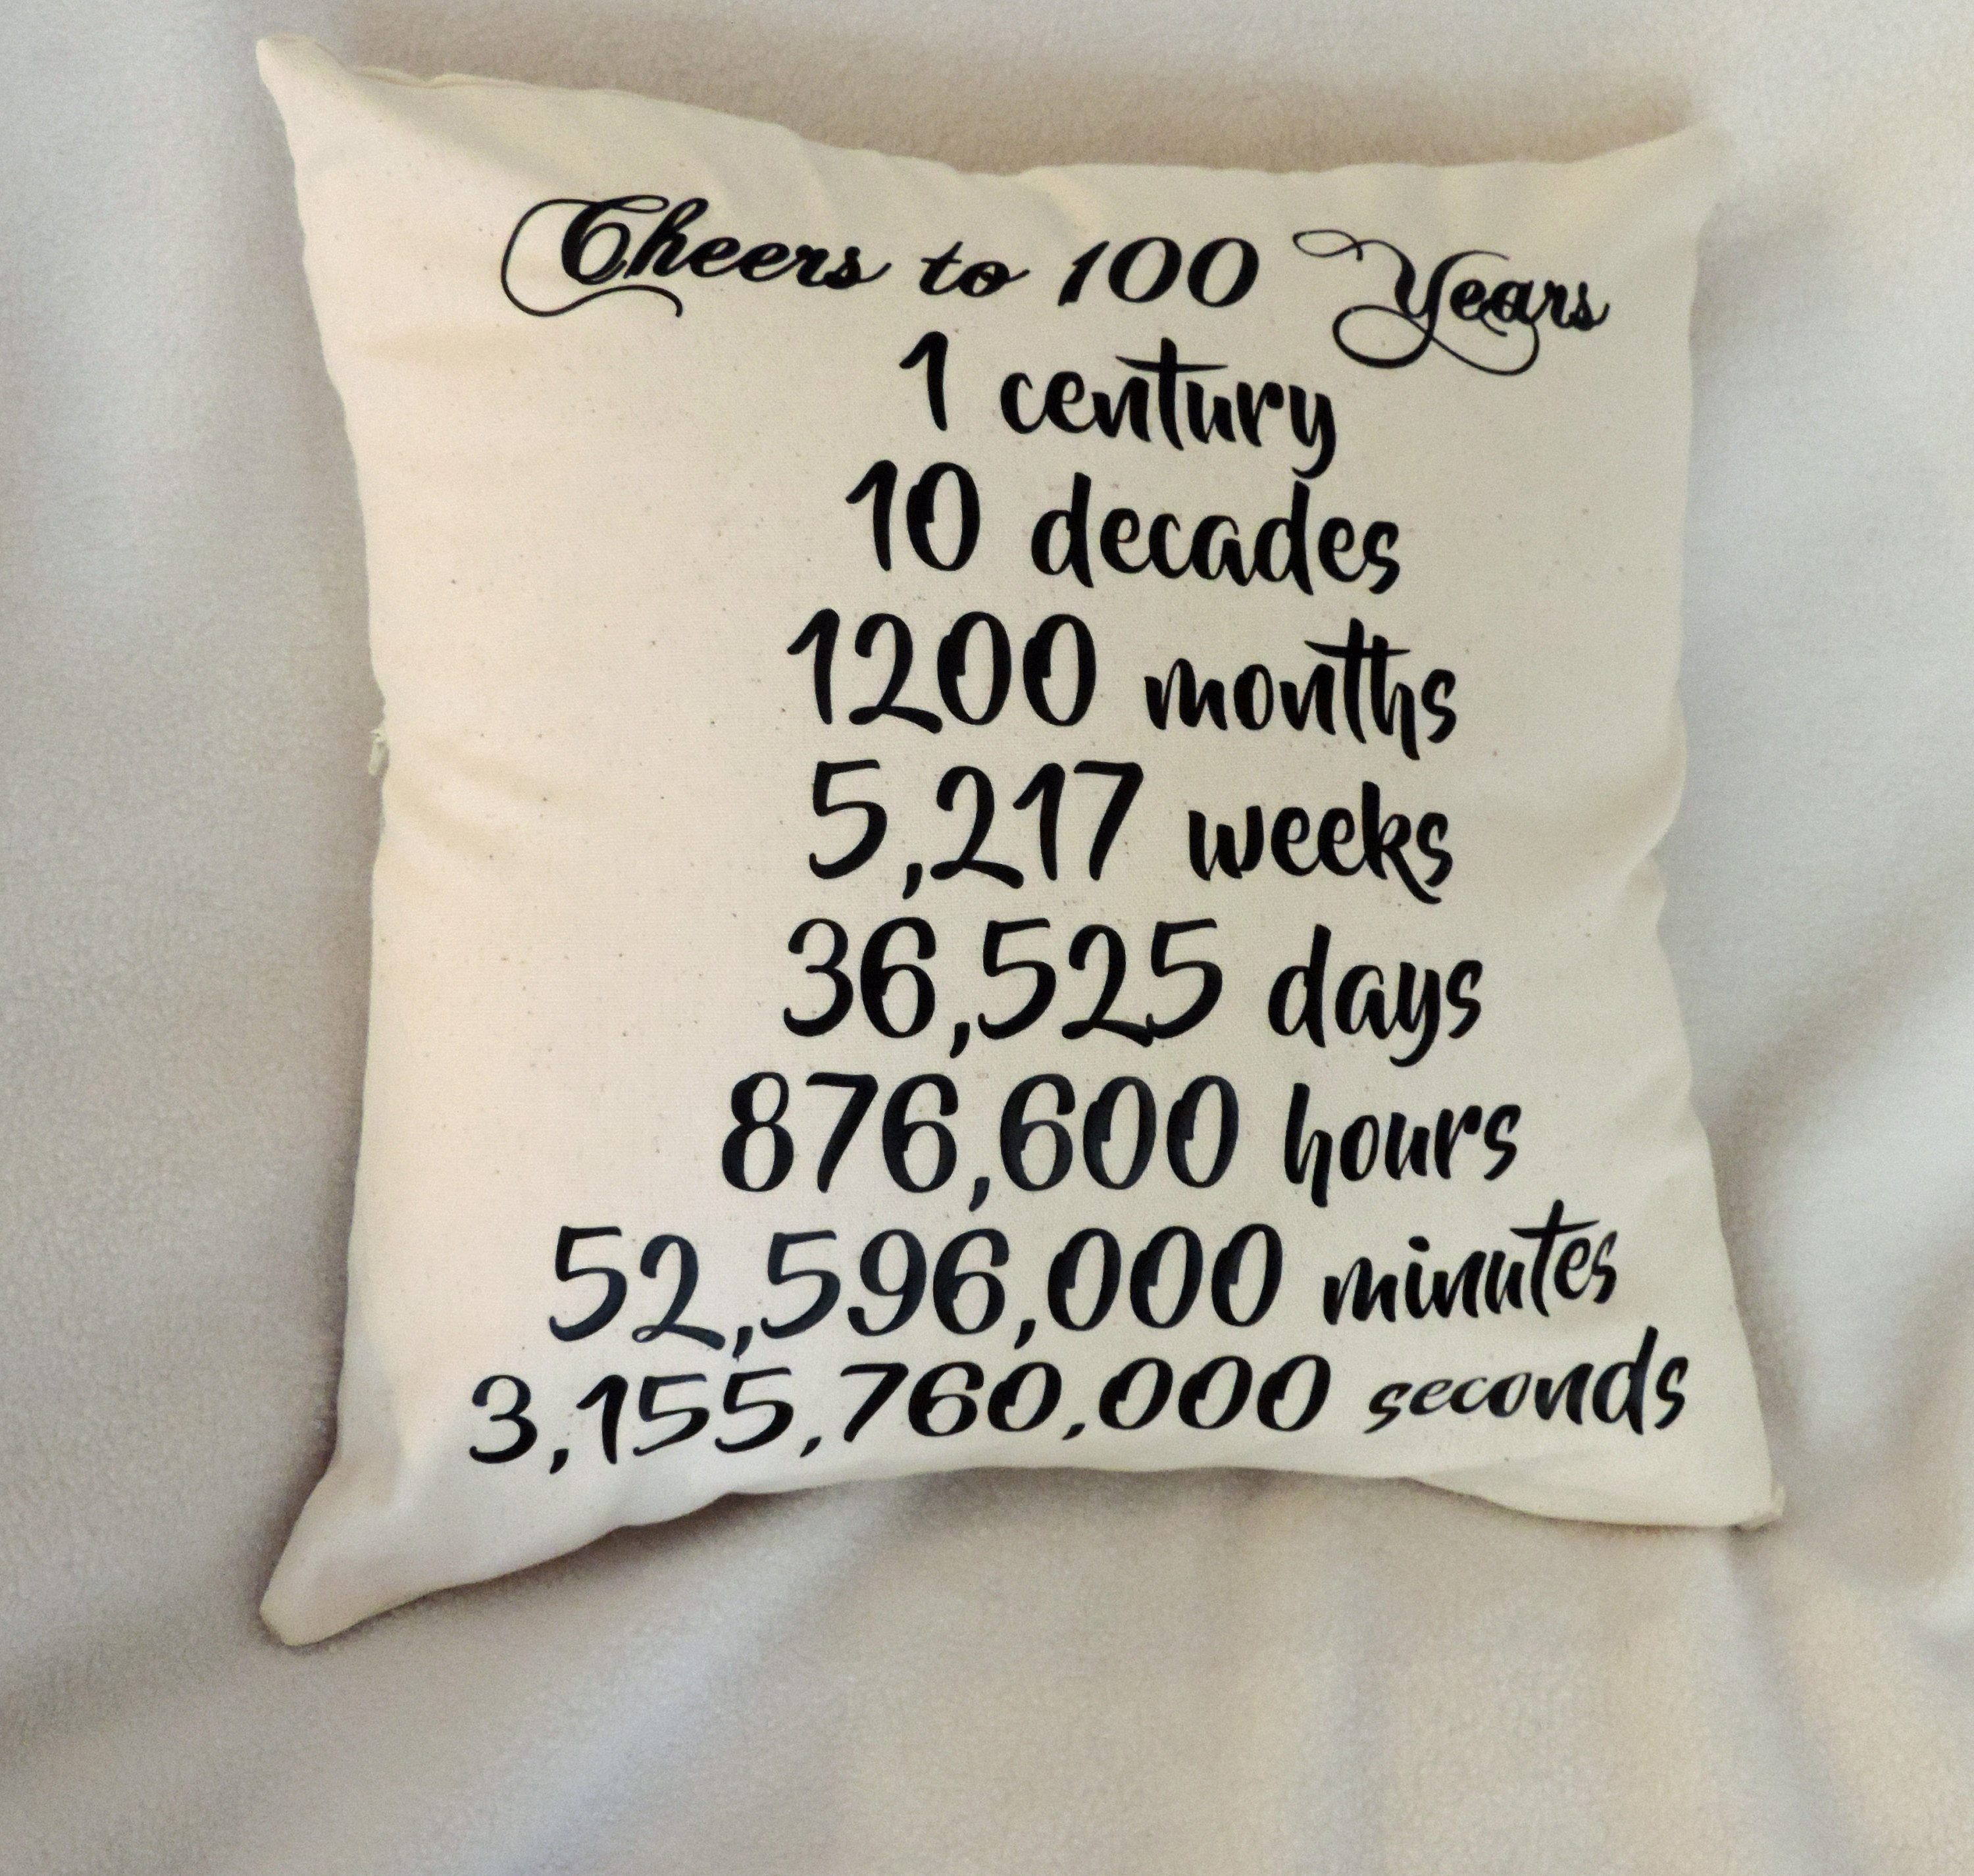 Cheers to 100 Years
1 century
10 decades
1200 months
5,217 weeks
36,525 days
876,600 hours
52,596,000 minutes
3,155,760,000 seconds